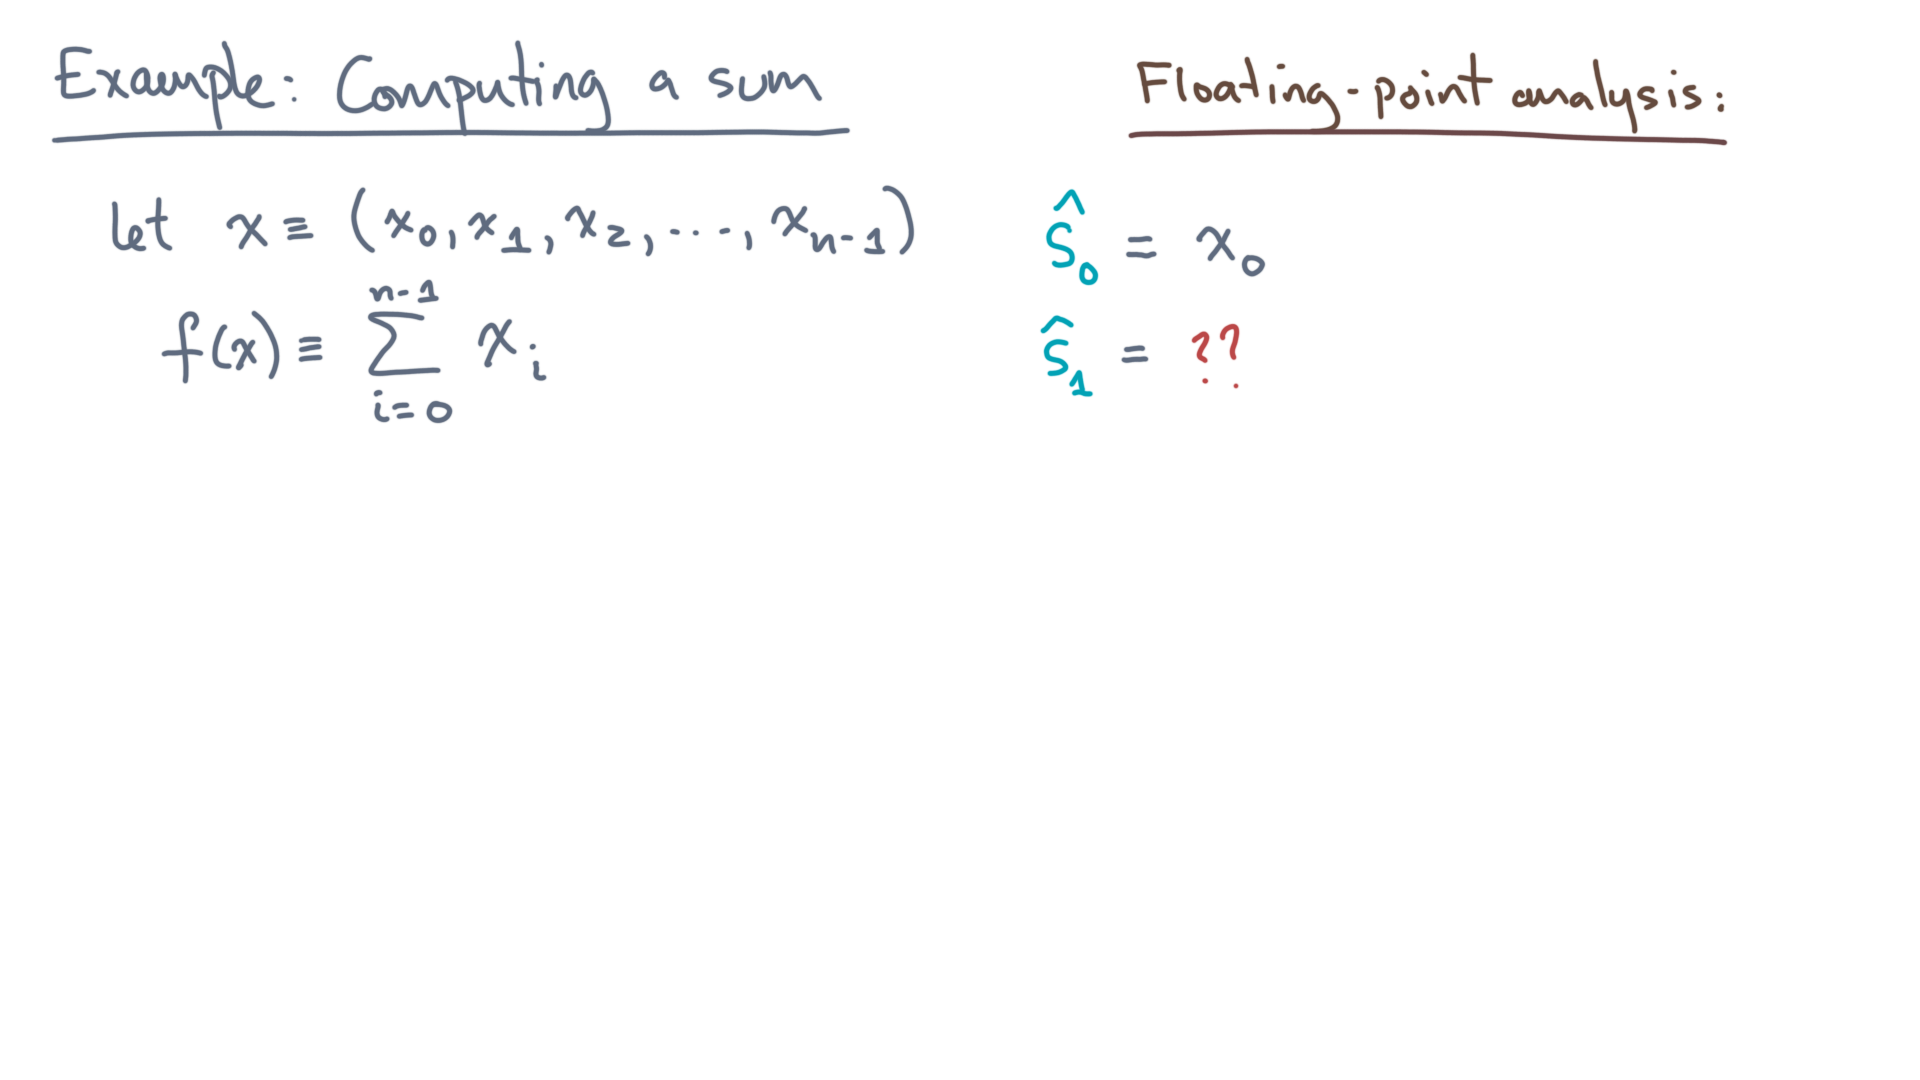 Example: Computing a sum
let x ≡ (x₀, x₁, x₂, ..., xₙ₋₁)
f(x) ≡ ∑ᵢ₌₀ⁿ⁻¹ xᵢ
Floating-point analysis:
ŝ₀ = x₀
ŝ₁ = ??